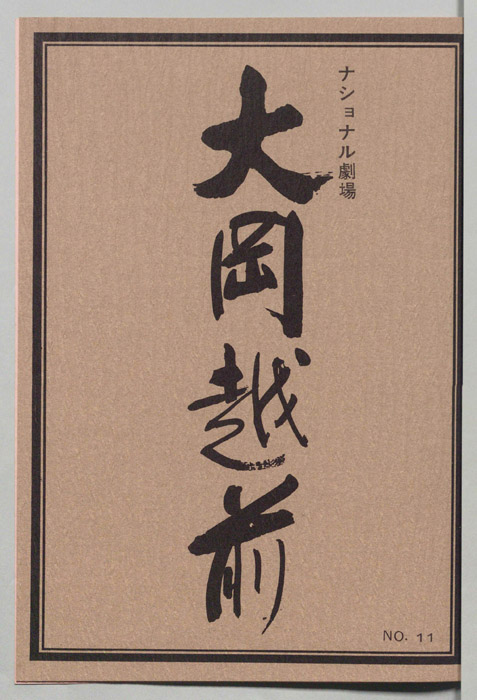 ナショナル劇場
大岡越前
NO. 11